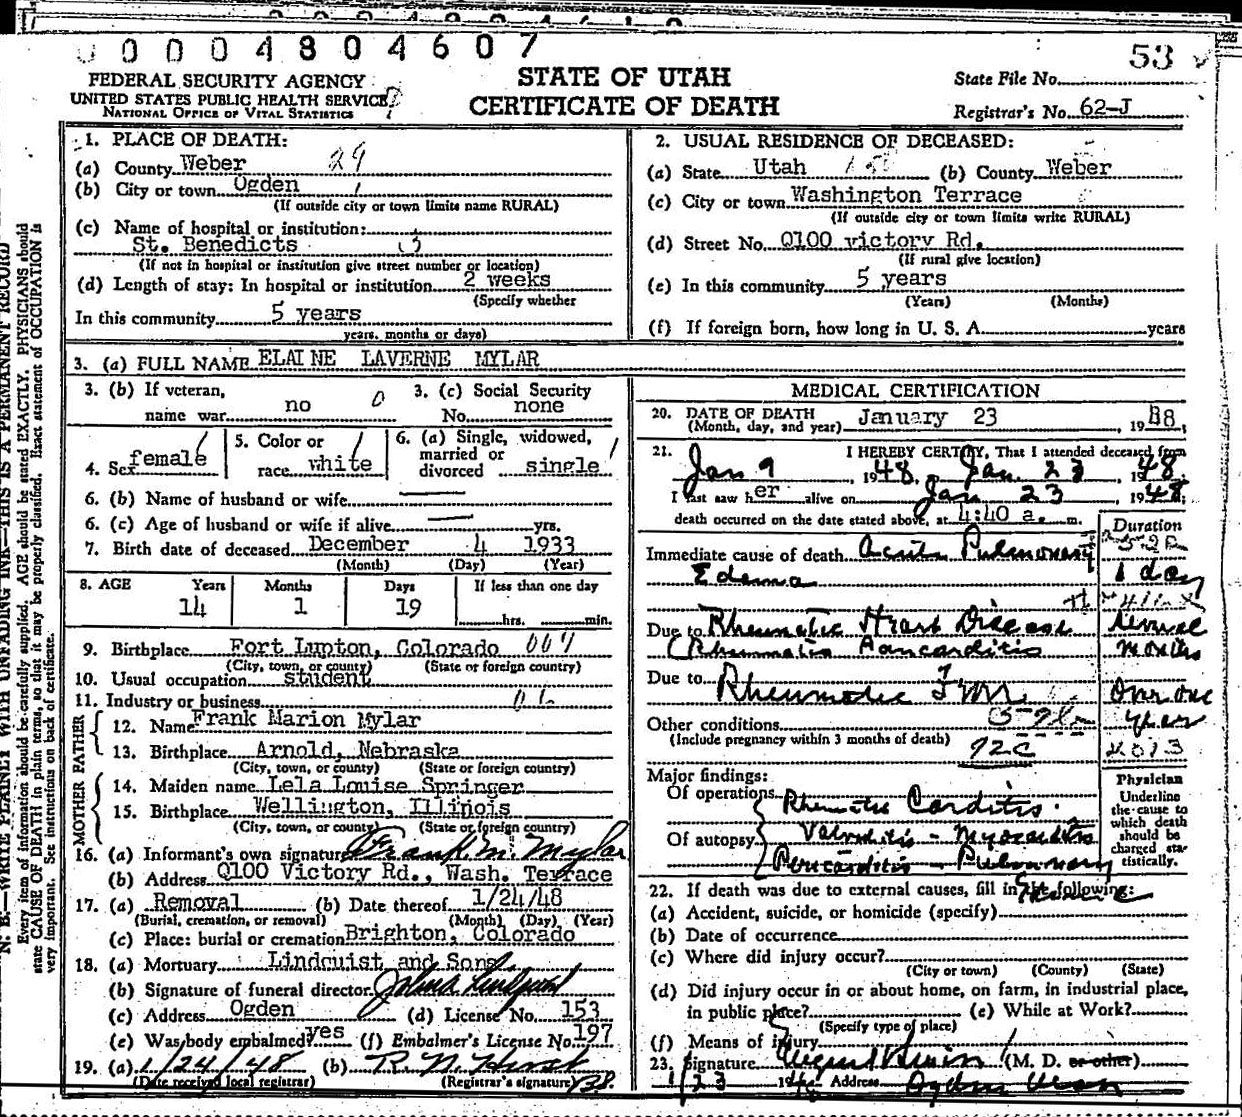 00004804607
53
FEDERAL SECURITY AGENCY
UNITED STATES PUBLIC HEALTH SERVICE
NATIONAL OFFICE OF VITAL STATISTICS
STATE OF UTAH
CERTIFICATE OF DEATH
State File No.
Registrar's No. 62-J
N. B.—WRITE PLAINLY WITH UNFADING INK—THIS IS A PERMANENT RECORD
Every item of information should be carefully supplied. AGE should be stated EXACTLY. PHYSICIANS should
state CAUSE OF DEATH in plain terms, so that it may be properly classified. Exact statement of OCCUPATION is
very important. See instructions on back of certificate.
1. PLACE OF DEATH:
(a) County Weber 29
(b) City or town Ogden
(If outside city or town limits name RURAL)
(c) Name of hospital or institution:
St. Benedicts
(If not in hospital or institution give street number or location)
(d) Length of stay: In hospital or institution 2 weeks
(Specify whether
In this community 5 years
years, months or days)
2. USUAL RESIDENCE OF DECEASED:
(a) State Utah (b) County Weber
(c) City or town Washington Terrace
(If outside city or town limits write RURAL)
(d) Street No. Q100 victory Rd.
(If rural give location)
(e) In this community 5 years
(Years) (Months)
(f) If foreign born, how long in U. S. A. years
3. (a) FULL NAME ELAINE LAVERNE MYLAR
3. (b) If veteran, name war no 0
3. (c) Social Security No. none
4. Sex female
5. Color or race white
6. (a) Single, widowed, married or divorced single
6. (b) Name of husband or wife
6. (c) Age of husband or wife if alive yrs.
7. Birth date of deceased December 4 1933
(Month) (Day) (Year)
8. AGE Years Months Days If less than one day
14 1 19 hrs. min.
9. Birthplace Fort Lupton, Colorado
(City, town, or county) (State or foreign country)
10. Usual occupation student
11. Industry or business
FATHER
12. Name Frank Marion Mylar
13. Birthplace Arnold, Nebraska
(City, town, or county) (State or foreign country)
MOTHER
14. Maiden name Lela Louise Springer
15. Birthplace Wellington, Illinois
(City, town, or county) (State or foreign country)
16. (a) Informant's own signature Frank M. Mylar
(b) Address Q100 Victory Rd., Wash. Terrace
17. (a) Removal (b) Date thereof 1/24/48
(Burial, cremation, or removal) (Month) (Day) (Year)
(c) Place: burial or cremation Brighton, Colorado
18. (a) Mortuary Lindquist and Sons
(b) Signature of funeral director
(c) Address Ogden (d) License No. 153
(e) Was body embalmed? yes (f) Embalmer's License No. 197
19. (a) 1/24/48 (b)
(Date received local registrar) (Registrar's signature)
MEDICAL CERTIFICATION
20. DATE OF DEATH January 23, 1948
(Month, day, and year)
21. I HEREBY CERTIFY, That I attended deceased from
Jan 9, 1948, Jan. 23, 1948.
I last saw her alive on Jan 23 1948;
death occurred on the date stated above, at 4:40 a. m.
Duration
Immediate cause of death Acute Pulmonary
Edema 1 day
Due to Rheumatic Heart Disease several
(Rheumatic Pancarditis months
Due to Rheumatic Over one
year
Other conditions
(Include pregnancy within 3 months of death) 92c
Major findings:
Of operations Rhematic Carditis.
Of autopsy Valvulitis - Myocarditis
Pericarditis - Pulmonary
Physician
Underline
the cause to
which death
should be
charged sta-
tistically.
22. If death was due to external causes, fill in the following:
(a) Accident, suicide, or homicide (specify)
(b) Date of occurrence
(c) Where did injury occur?
(City or town) (County) (State)
(d) Did injury occur in or about home, on farm, in industrial place,
in public place? (e) While at Work?
(Specify type of place)
(f) Means of injury
23. Signature (M. D. or other)
1/23 1948 Address Ogden Utah